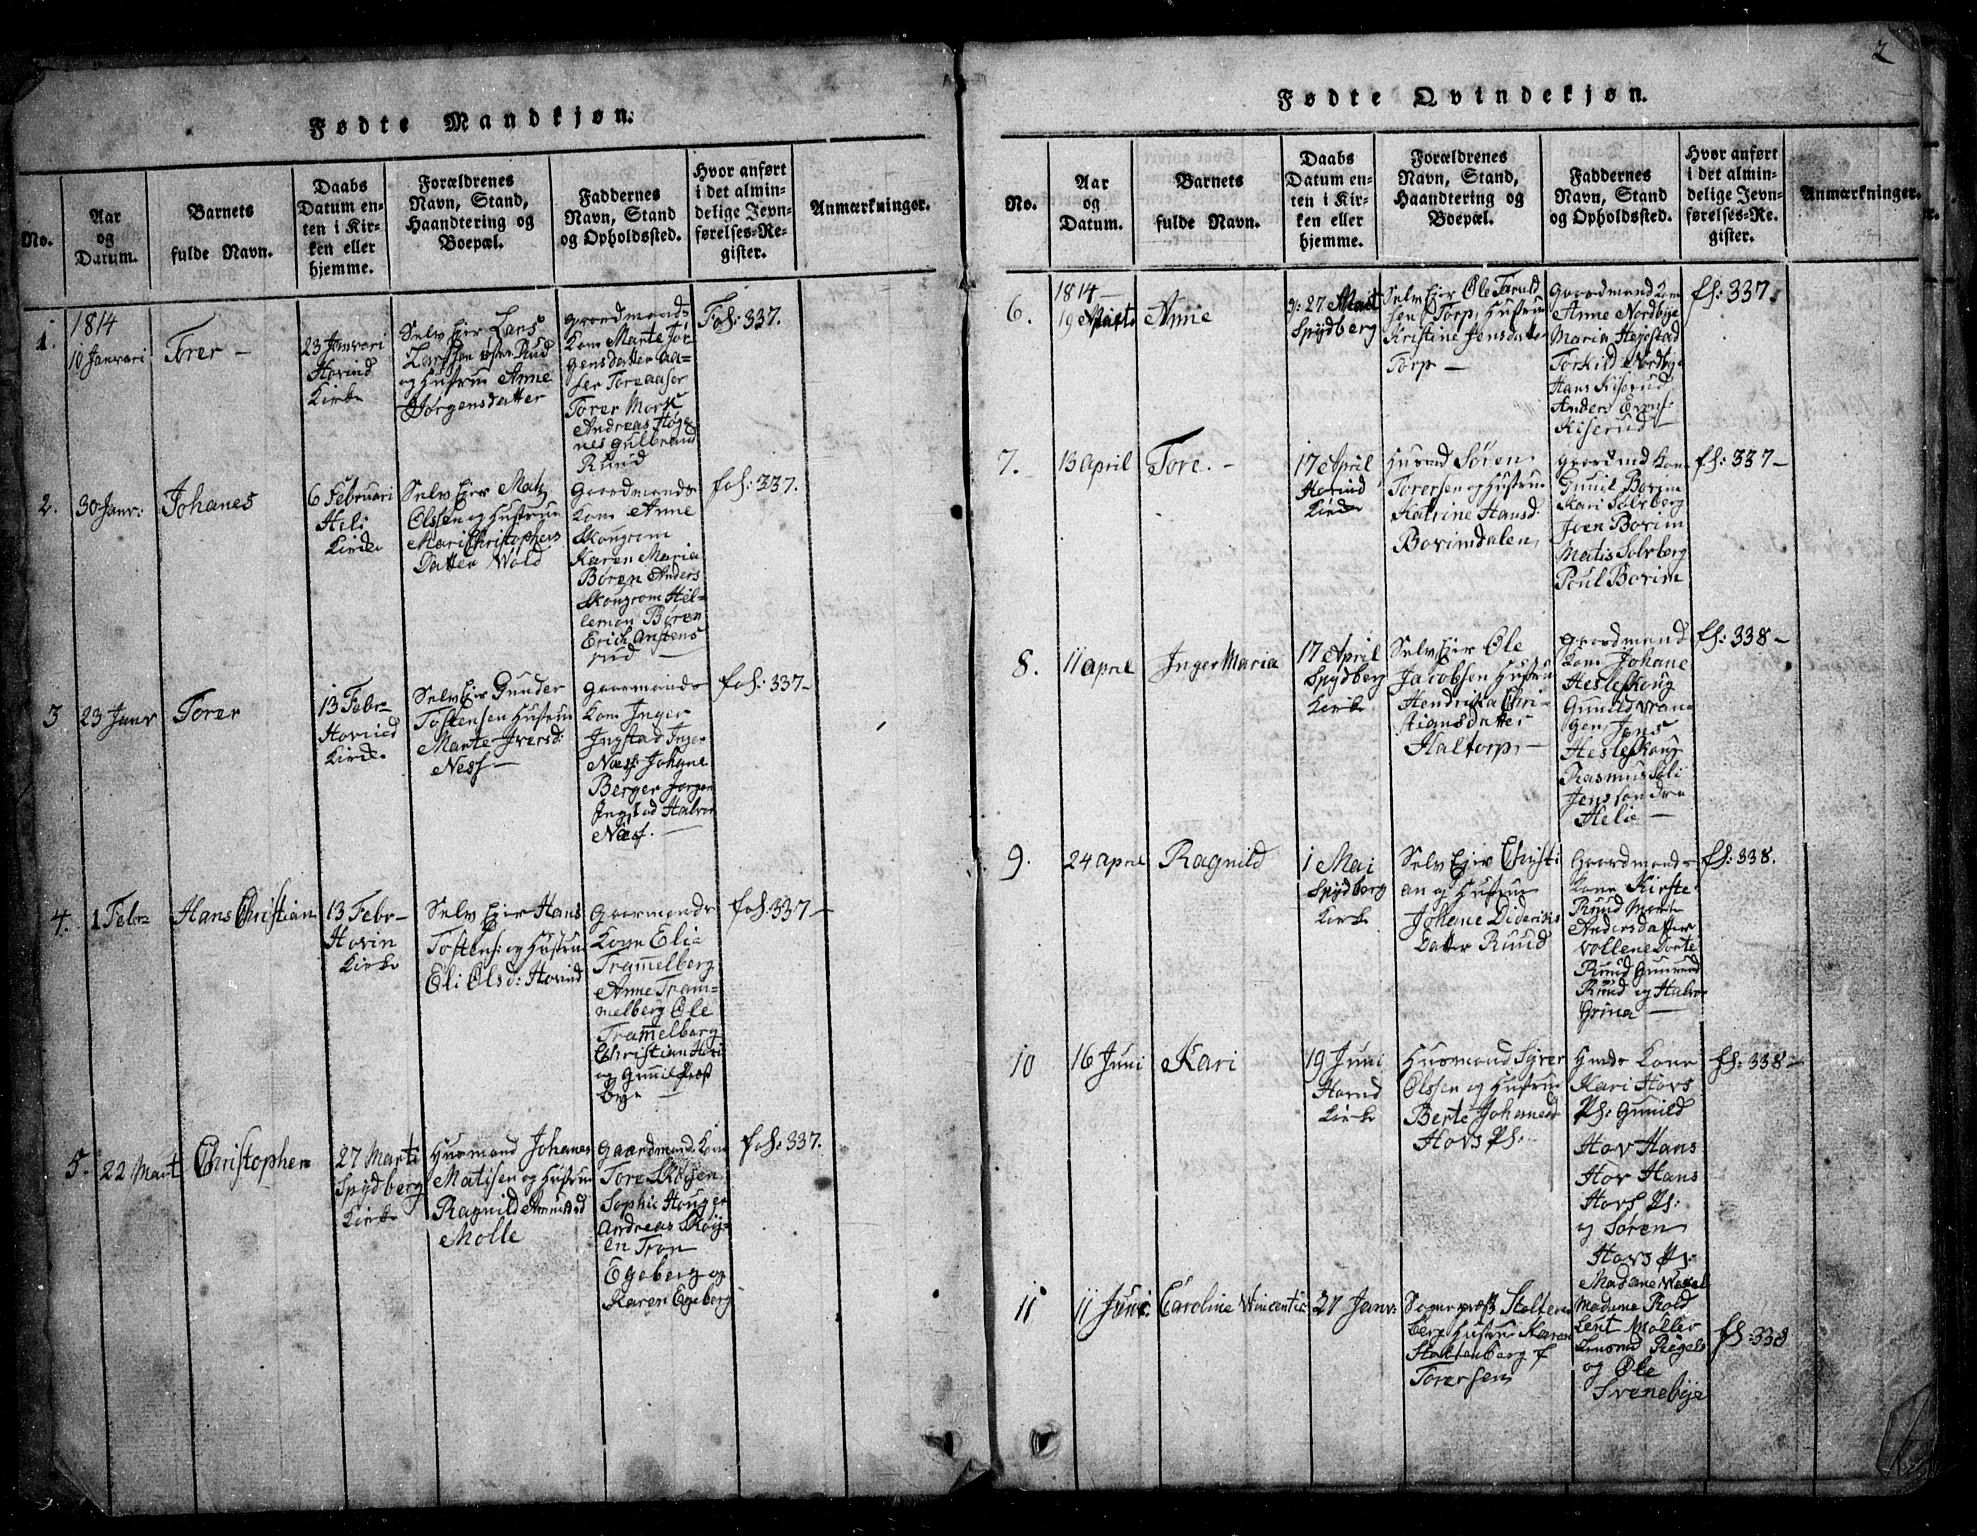 Fødte Mandkjøn.
No.
Aar
og
Datum.
Barnets
fulde Navn.
Daabs
Datum en-
ten i Kir-
ken eller
hjemme.
Forældrenes
Navn, Stand,
Haandtering og
Boepæl.
Faddernes
Navn, Stand
og Opholdssted.
Hvor anført
i det almin-
delige Jevn-
førelses-Re-
gister.
Anmærkninger.
1.
1814
10 Januari
Torer —
23 Januari
Hovind
Kirke
Selv Ejer Lars
Larssen øfre Rud
og Hustrue Anne
Jørgensdatter
Gaardmands
Kone Marte Jør
gensdatter Aa-
ser Tore Aaser
Torer Mork
Andreas Høge
nes Gulbrand
Ruud
Fol: 337.
2.
30 Janr:
Johanes
6 Februari
Heli
Kirke
Selv Ejer Matz
Olssen og Hustrue
Mari Christophers
Datter Wold
Gaardmands
Kone Anne
Skougrom
Karen Maria
Børen Anders
Skougrom Hel-
lemon Børen
Erich Anstens
rud —
fol: 337.
3
23 Janr
Torer
13 Febr—
Hovind
Kirke
Selv Ejer Gunder
Tostensen Hustrue
Marte Iversd:
Ness —
Gaarmands
Kone Inger
Ingstad Inger
Næss Johane
Berger Jørgen
Ingstad Halvor
Næss. —
fol: 337—
4.
1 Febr
Hans Christian
13 Febr—
Hovin
Kirke
Selv Ejer Hans
Tostens: og Hustrue
Eli Olsd: Hovind
Gaarmands
Kone Elie
Tram̄elberg
Anne Tram-
melberg Ole
Tram̄elberg
Christian Hovi
og Gunnil Præst
Bye
fol: 337—
5.
22 Mart
Christopher
27 Marti
Spydberg
Kirke
Husmand Johanes
Matisen og Hustrue
Ragnild Amundsd
Molle
Gaardmands Kone
Tore Skøyen
Sophie Houger
Andreas Skøy-
en Tron
Egeberg og
Karen Egeberg
fol: 337.
2
Fødte Qvindekjøn.
No.
Aar
og
Datum.
Barnets
fulde Navn.
Daabs
Datum en-
ten i Kir-
ken eller
hjemme.
Forældrenes
Navn, Stand,
Haandtering og
Boepæl.
Faddernes
Navn, Stand
og Opholdssted.
Hvor anført
i det almin-
delige Jevn-
førelses-Re-
gister.
Anmærkninger.
6.
1814—
19 Marts
Anne
27 Mart
Spydberg
Selv Ejer Ole Taruld
sen Torp, Hustrue
Kristine Jensdatter
Torp —
Gaardmand Kone
Anne Nordbye
Maria Hejestad
Torkild Nordbye
Hans Kiserud
Anders
Kiserud —
fl: 337.
7.
13 April
Tore. —
17 April
Hovind
Kirke
Husmd Søren
Torersen og Hustrue
Katrine Hansd:
Bovimdalen,
Gaardmd Kone
Gunil Bovim
Kari Solrberg
Joen Bovim
Matis Solrberg
Poul Bovim
fl: 337—
8.
11 April
Inger Maria
17 April
Spydberg
Kirke
Selv Ejer Ole
Jacobsen Hustrue
Hendrikka Chri-
stiansdatter
Haltorp, —
Gaardmand
Kone Johane
Hesleskoug
Gunild Vran
gen Jens
Hesleskoug
Rasmus Søli
Jens søndre
Helie —
fl: 338—
9.
24 April
Ragnild
1 Mai
Spydberg
Kirke
Selv Ejer Christi
an og Hustrue
Johane Dideriks
Datter Ruud
Gaardmands
Kone Kirste
Ruud Marte
Andersdatter
Vollene Dorte
Ruud Gunerud
Ruud og Halvor
Grina —
fl: 338.
10
16 Juni
Kari
19 Juni
Hovind
Kirke
Husmand Syver
Olssen og Hustrue
Berte Johanesd
Hovs Pl:
Husmds Kone
Kari Hovs
Pl: Gunild
Hov Hans
Hov Hans
Hovs Pl:
og Søren
Hovs Pl:
fl: 338—
11
11 Juni
Caroline Wincentia
27 Janr:
Sognepræst Stolten
berg Hustru Karen
Stoltenberg f
Torersen
Madame Wetzel
Madame Rold
Lent Møller
Amund Rigels
og Ole
Svenebye
fl: 338